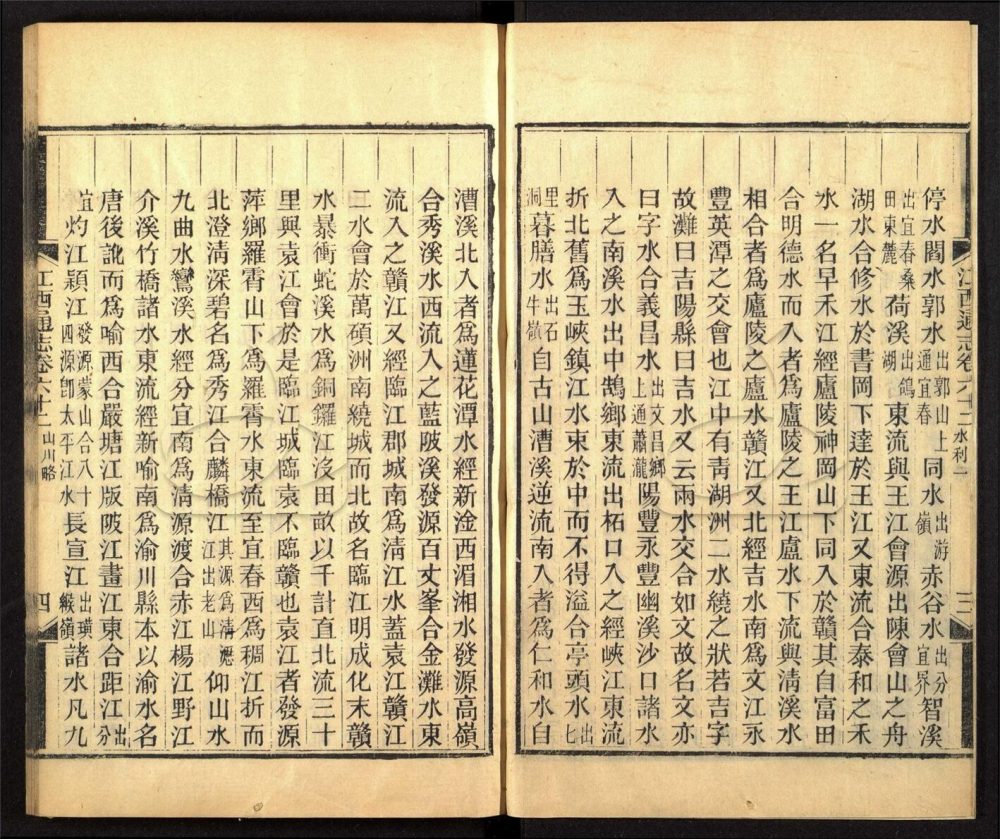 江西通志卷六十二 水利一 三
停水閻水郭水出郭山上通宜春同水出游嶺赤谷水出分宜界智溪
出宜春桑田東麓荷溪出鴿湖東流與王江會源出陳會山之舟
湖水合修水於書岡下達於王江又東流合泰和之禾
水一名早禾江經廬陵神岡山下同入於贛其自富田
合明德水而入者爲廬陵之王江盧水下流與清溪水
相合者爲廬陵之廬水贛江又北經吉水南爲文江永
豐英潭之交會也江中有青湖洲二水繞之狀若吉字
故灘曰吉陽縣曰吉水又云兩水交合如文故名文亦
曰字水合義昌水出文昌鄉上通蕭瀧陽豐永豐幽溪沙口諸水
入之南溪水出中鵠鄉東流出柘口入之經峽江東流
折北舊爲玉峽鎮江水束於中而不得溢合亭頭水出七
里洞暮膳水出石牛嶺自古山漕溪逆流南入者爲仁和水自
漕溪北入者爲蓮花潭水經新淦西湄湘水發源高嶺
合秀溪水西流入之藍陂溪發源百丈峯合金灘水東
流入之贛江又經臨江郡城南爲清江水蓋袁江贛江
二水會於萬碩洲南繞城而北故名臨江明成化末贛
水暴衝蛇溪水爲銅鑼江沒田畝以千計直北流三十
里與袁江會於是臨江城臨袁不臨贛也袁江者發源
萍鄉羅霄山下爲羅霄水東流至宜春西爲稠江折而
北澄清深碧名爲秀江合麟橋江其源爲清瀝江出老山仰山水
九曲水鸞溪水經分宜南爲清源渡合赤江楊江野江
介溪竹橋諸水東流經新喻南爲渝川縣本以渝水名
唐後訛而爲喻西合嚴塘江版陂江畫江東合距江出分
宜灼江穎江發源蒙山合八十四源卽太平江水長宣江出璜緱嶺諸水凡九
江西通志卷六十二 山川略 四